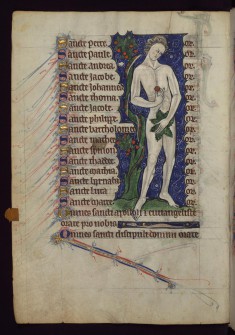 Sancte petre. or.
Sancte paule. or.
Sancte andrea. or.
Sancte jacobe. or.
Sancte johannes. or.
Sancte thoma. or.
Sancte jacobe. or.
Sancte philippe. or.
Sancte bartholomee. or.
Sancte mathee. or.
Sancte symon. or.
Sancte thadee. or.
Sancte mathia. or.
Sancte barnaba. or.
Sancte luca. or.
Sancte marce. or.
Omnes sancti apostoli et euangeliste
orate pro nobis.
Omnes sancti discipuli domini orate